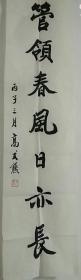 管領春風日亦長
丙子三月 高式熊